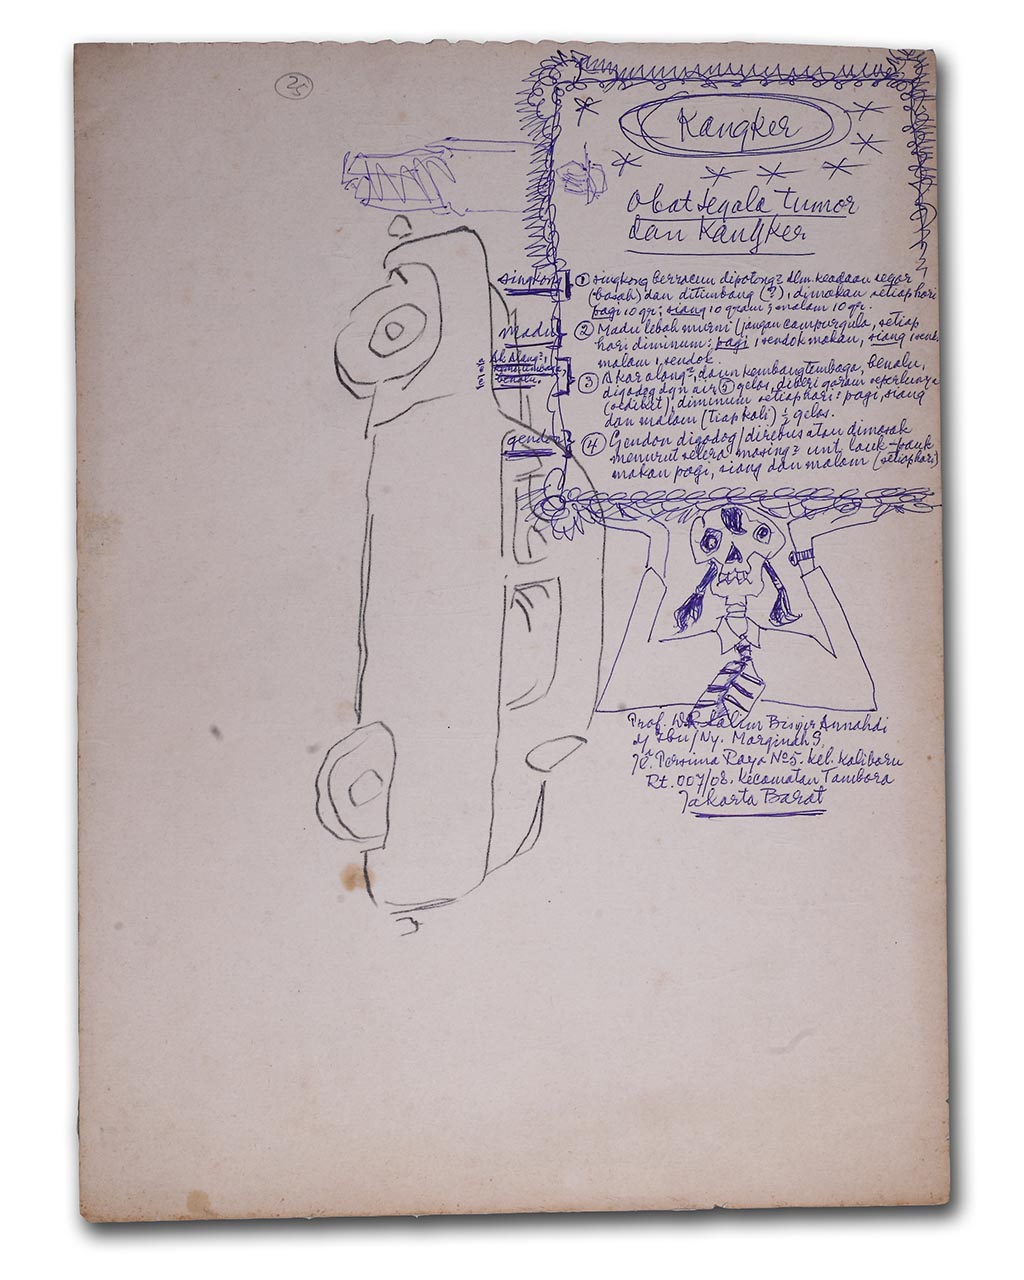 25
Kangker
obat segala tumor
dan kangker
singkong
① singkong berracun dipotong2 dlm. keadaan segar
(basah) dan ditimbang (?), dimakan setiap hari
pagi 10 gr; siang 10 gram; malam 10 gr.
madu
② Madu lebah murni (jangan campur gula, setiap
hari diminum: pagi 1 sendok makan, siang 1 send
malam 1, sendok.
Ak. alang2,
benalu.
③ Akar alang2, daun kembang tembaga, benalu,
digodog dgn air ⑤ gelas, diberi garam seperlunya
(sedikit), diminum setiap hari: pagi, siang
dan malam (tiap kali) ½ gelas.
gendon
④ Gendon digodog/direbus atau dimasak
menurut selera masing2 unt. lauk-pauk
makan pagi, siang dan malam (setiap hari)
Prof. Salim
Ibu/Ny. Marginah S.
Jl. Persima Raya No 5. Kel. Kalibaru
Rt. 007/08. Kecamatan Tambora
Jakarta Barat